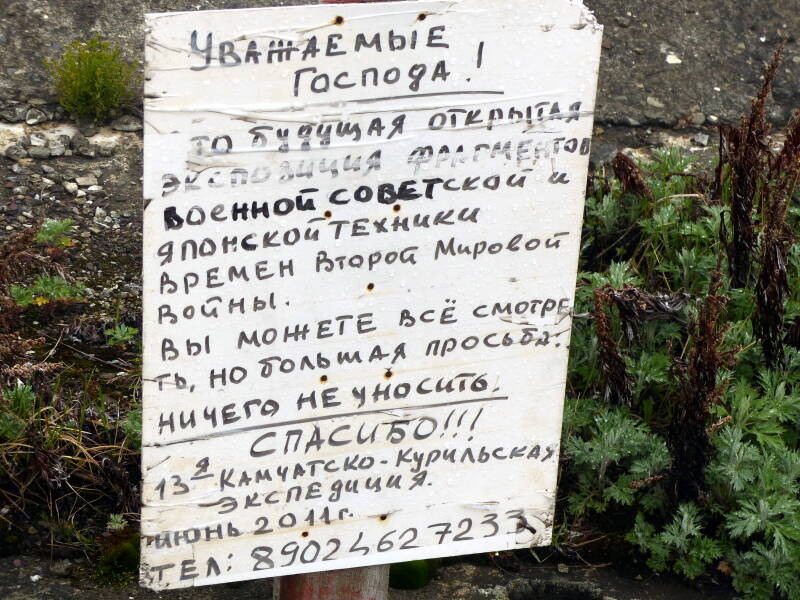 Уважаемые
Господа.!
Это будущая открытая
экспозиция фрагментов
военной советской и
японской техники
времен Второй Мировой
войны.
Вы можете всё смотре
ть, но большая просьба.
ничего не уносить.
Спасибо!!!
13я Камчатско-Курильская
экспедиция.
июнь 2011г.
тел: 89024627233